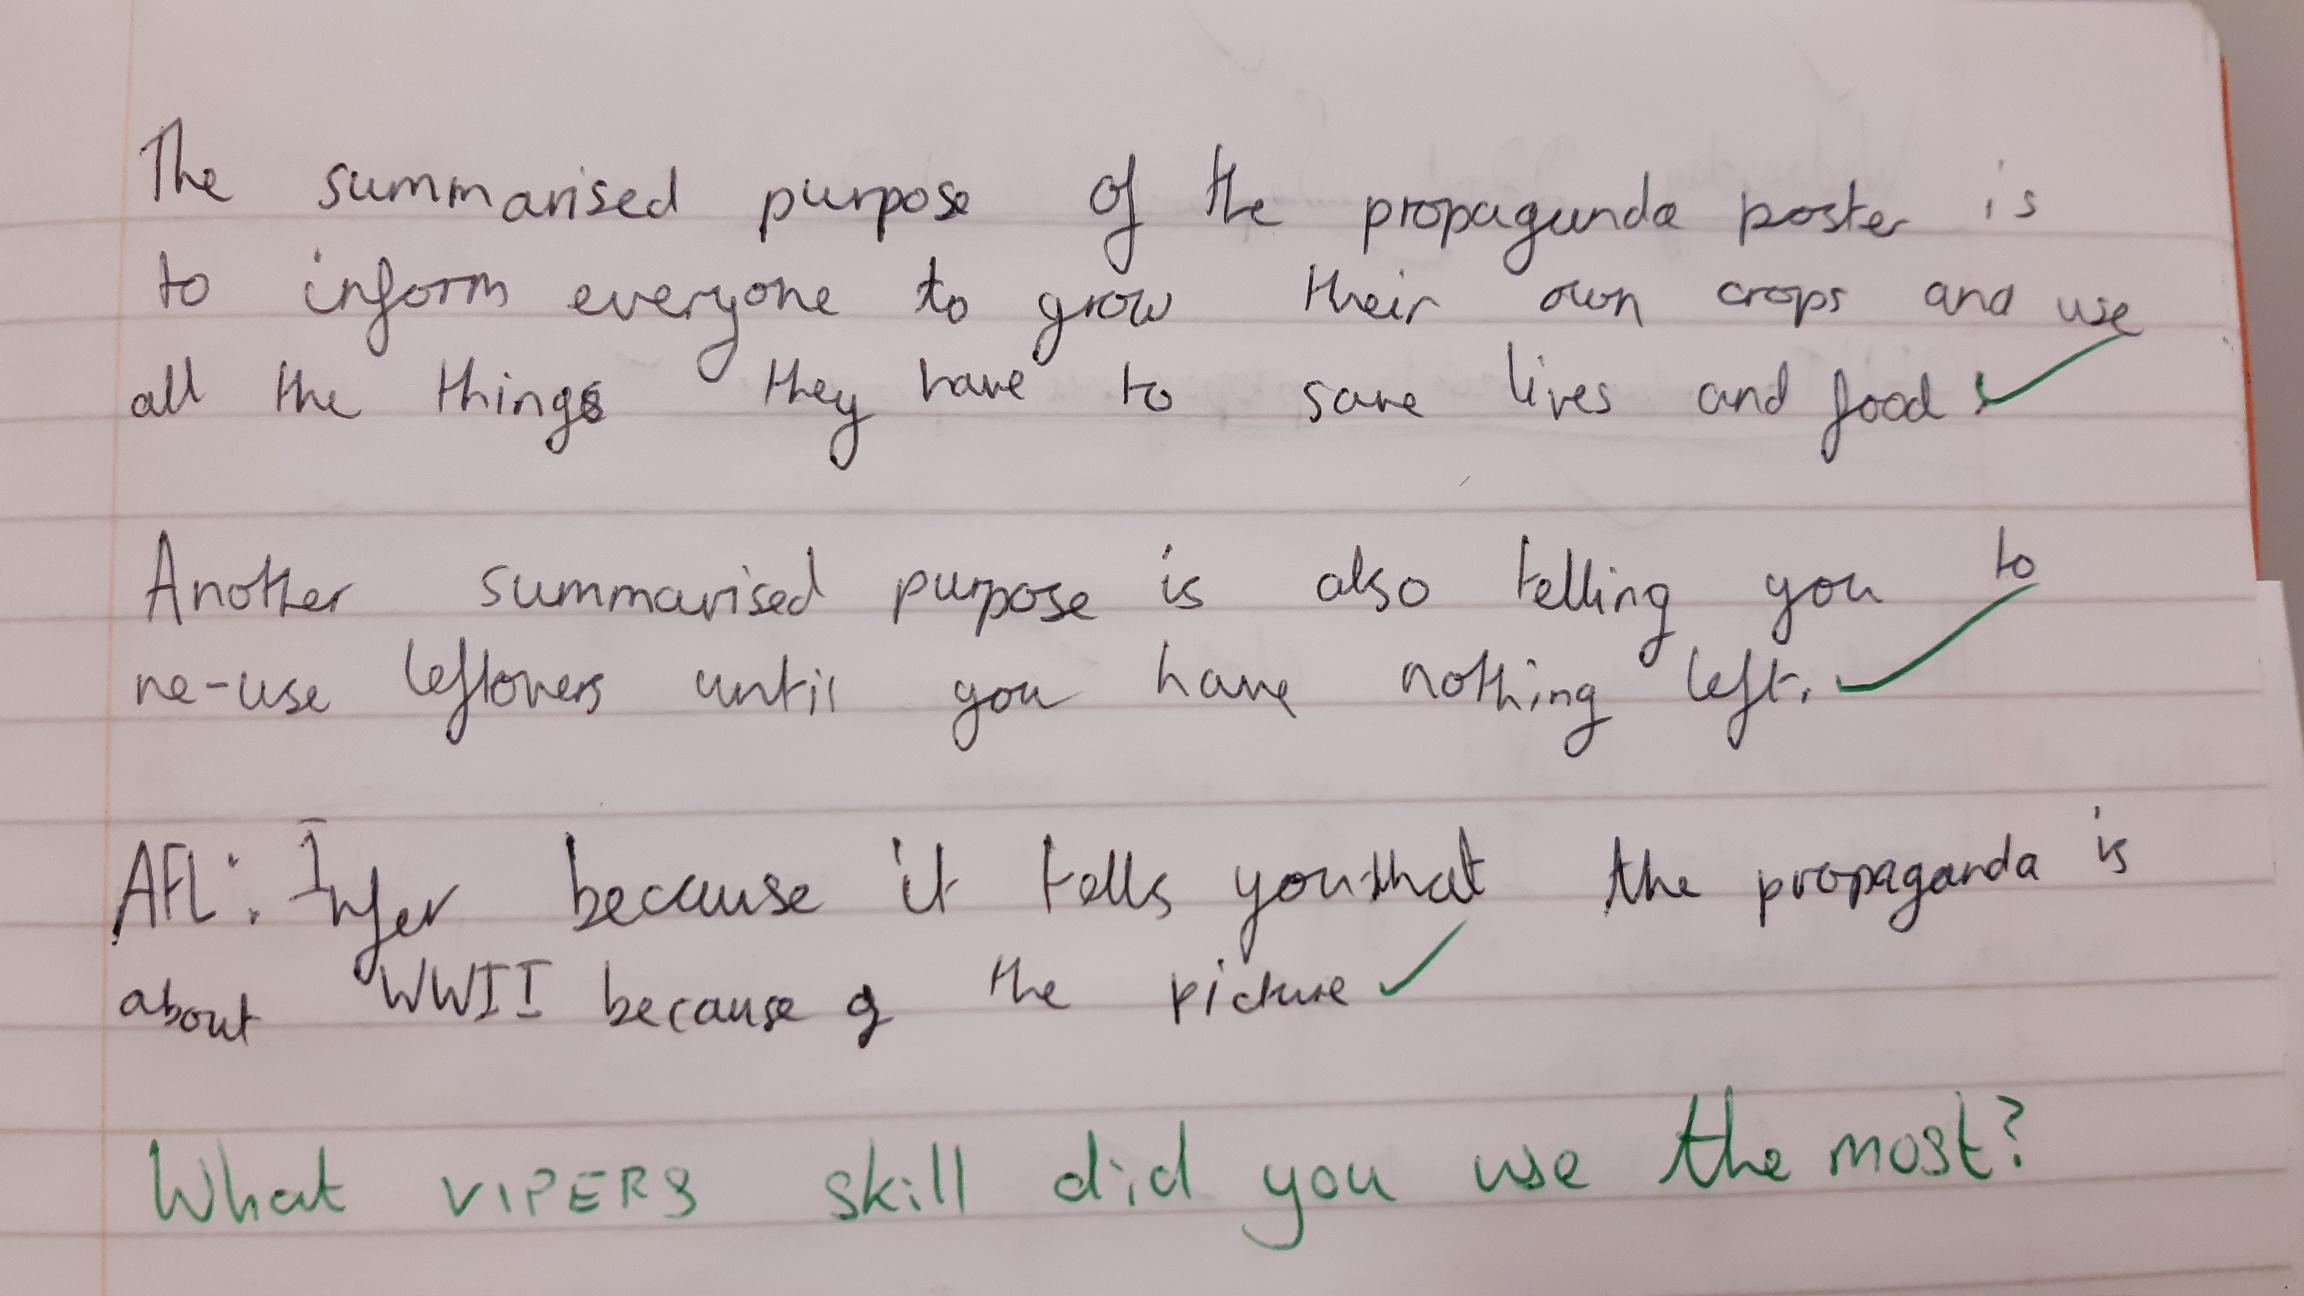 The summarised purpose of the propagunda poster is
to inform everyone to grow their own crops and use
all the things they have to save lives and food.
Another summarised purpose is also telling you to
re-use leftovers until you have nothing left.
AFL: Infer because it tells you that the propaganda is
about WWII because of the picture
What VIPERS skill did you use the most?